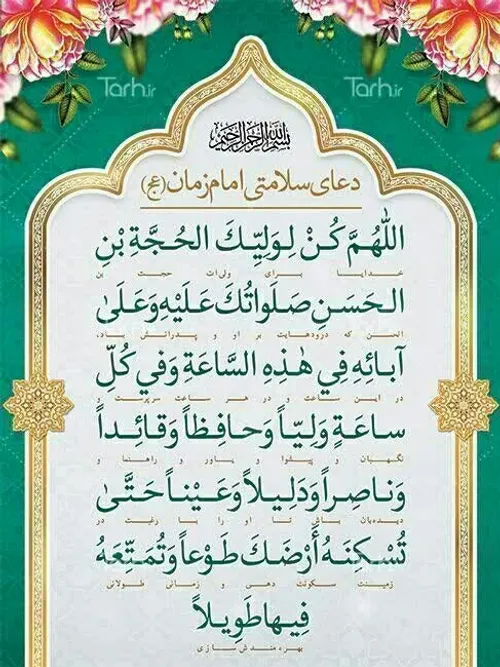 Tarh.ir
Tarh.ir
بسم الله الرحمن الرحیم
دعای سلامتی امام زمان (عج)
اَللّٰهُمَّ كُنْ لِوَلِيِّكَ الحُجَّةِ بْنِ
خدایا برای ولی‌ات حجت بن
الحَسَنِ صَلَواتُكَ عَلَيْهِ وَعَلَىٰ
الحسن که درودهایت بر او و پدرانش باد،
آبائِهِ فِي هٰذِهِ السَّاعَةِ وَفي كُلِّ
در این ساعت و در هر ساعت سرپرست و
ساعَةٍ وَلِيّاً وَحافِظاً وَقائِداً
نگهبان و پیشوا و یاور و راهنما و
وَناصِراً وَدَلِيلاً وَعَيْناً حَتَّىٰ
دیده‌بان باش تا او را با رغبت در
تُسْكِنَهُ أَرْضَكَ طَوْعاً وَتُمَتِّعَهُ
زمینت سکونت دهی و زمانی طولانی
فِيها طَوِيلاً
بهره‌مندش سازی